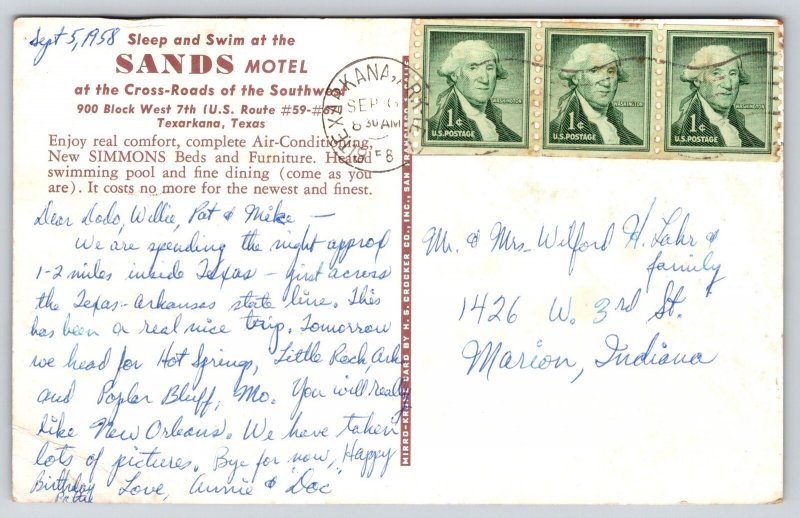 Sept 5, 1958
Sleep and Swim at the
SANDS MOTEL
at the Cross-Roads of the Southwest
900 Block West 7th (U.S. Route #59-#67)
Texarkana, Texas
Enjoy real comfort, complete Air-Conditioning,
New SIMMONS Beds and Furniture. Heated
swimming pool and fine dining (come as you
are). It costs no more for the newest and finest.
Dear Dodo, Willie, Pat & Mike —
We are spending the night approx
1-2 miles inside Texas — just across
the Texas-Arkansas state line. This
has been a real nice trip. Tomorrow
we head for Hot Springs, Little Rock, Ark
and Poplar Bluff, Mo. You will really
like New Orleans. We have taken
lots of pictures. Bye for now, Happy
Birthday Love, Annie & "Doc"
Pattie
TEXARKANA, ARK.-TEX.
SEP 6
8 30 AM
1958
1¢
WASHINGTON
U.S. POSTAGE
1¢
WASHINGTON
U.S. POSTAGE
1¢
WASHINGTON
U.S. POSTAGE
MIRRO-KROME CARD BY H. S. CROCKER CO., INC., SAN FRANCISCO
Mr. & Mrs. Wilford H. Lahr &
family
1426 W. 3rd St.
Marion, Indiana